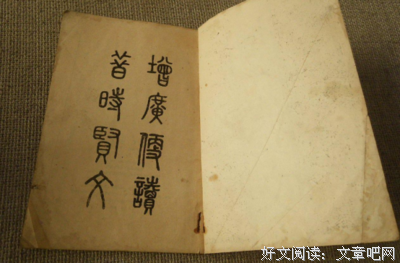 增廣便讀
昔時賢文
好文阅读：文章吧网